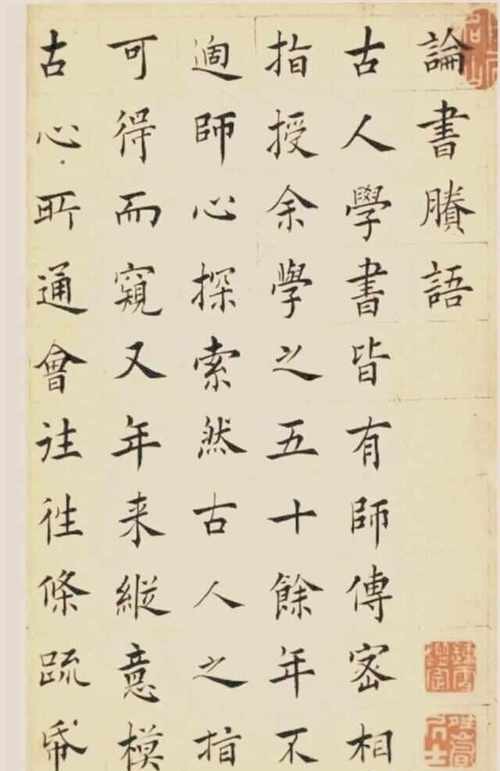 論書賸語
古人學書皆有師傳密相
指授余學之五十餘年不
過師心探索然古人之指
可得而窺又年来縱意模
古心所通會往往條疏